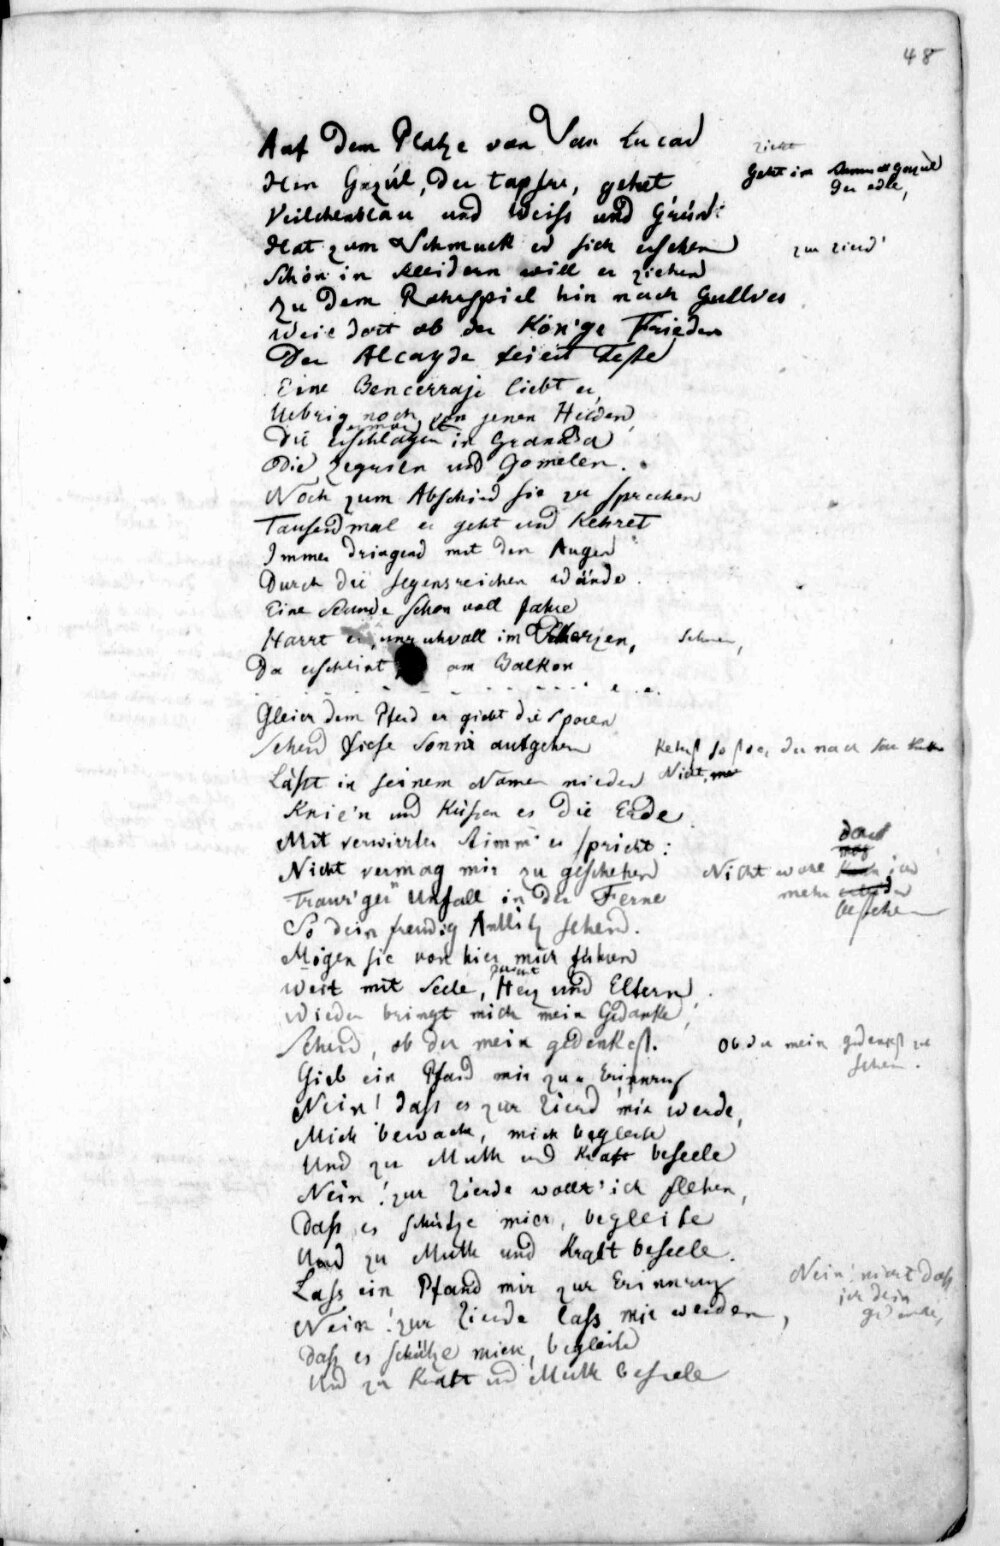 48
Auf dem Platze von San Lucar
zieht
Hin Gazúl, der tapfre, gehet
Geht im
der edle,
Veilchenblau und Weiss und Grün
Hat zum Schmuck er sich ersehen
zur Zierd'
Schön in Kleidern will er ziehen
Zu dem Rohrspiel hin nach Gelves
Weil dort ob der Kön'ge Frieden
Der Alcayde feiert Feste
Eine Bencerraje liebt er,
Uebrig noch von jenen Helden,
Die erschlagen in Granada
Die Zegrien und Gomelen.
Noch zum Abschied sie zu sprechen
Tausendmal er geht und kehret
Immer dringend mit den Augen
Durch die segensreichen Wände.
Eine Stunde schon voll Jahre
Harrt er, unruhvoll im Herzen,
Sehnen,
Da erscheint am Balkon
Gleich dem Pferd er giebt die Sporen
Sehend diese Sonne aufgehen
Kehrst so du nach
Nicht,
Lässt in seinem Namen nieder
Knie'n und Küssen es die Erde
Mit verwirrter Stimm' er spricht:
Nicht vermag mir zu geschehen
Nicht wäre ich
mehr
bestehen
Traur'ger Unfall in der Ferne
So dein freudig Antlitz sehend.
Mögen sie von hier mich führen
Weit mit Seele, Herz und Eltern,
Wieder bringt mich mein Gedanke,
Sehend, ob du mein gedenkest.
Ob du mein gedenkst zu
sehen.
Gieb ein Pfand mir zur Erinnrung
Nein! dass es zur Zierd' mir werde,
Mich bewache, mich begleite
Und zu Muth und Kraft beseele
Nein! zur Zierde wollt' ich flehen,
Dass es schütze mich, begleite
Und zu Muth und Kraft beseele.
Lass ein Pfand mir zur Erinnrung
Nein! nicht dass
ich dein
gedenke,
Nein! zur Zierde lass mir werden,
Dass es schütze mich, begleite
Und zu Kraft und Muth beseele